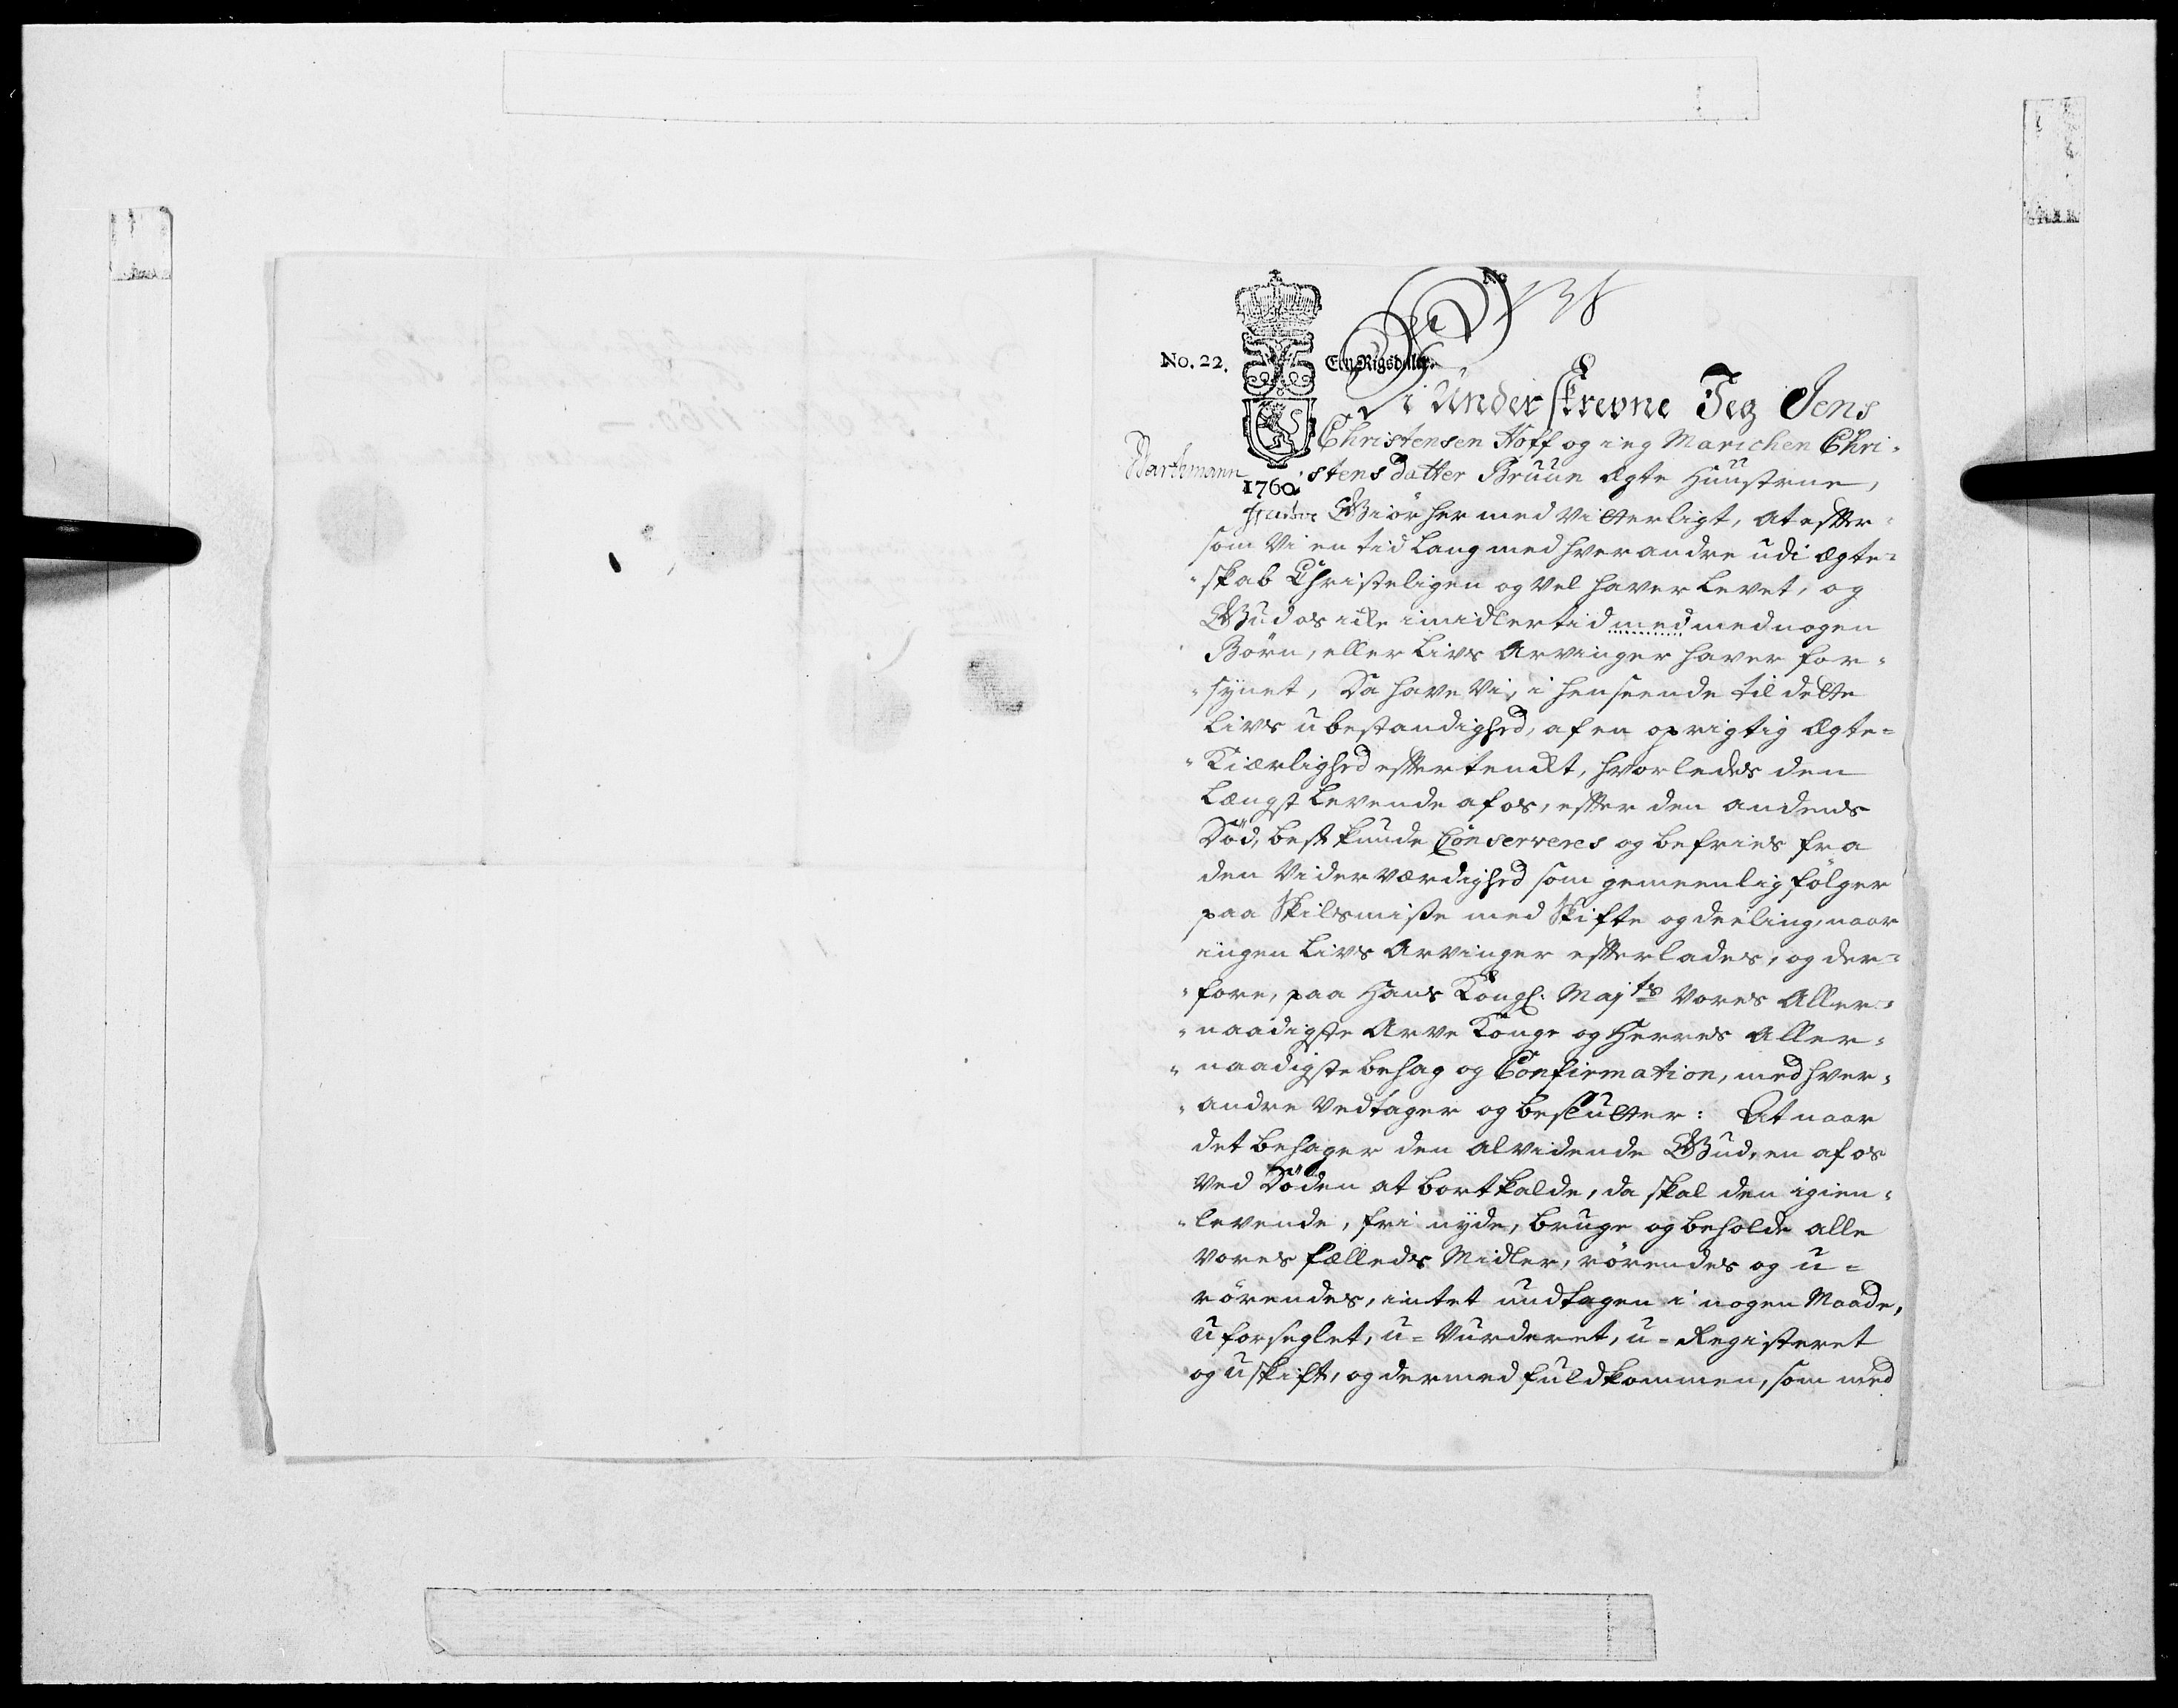 No
No. 22.
Een Rigsdaler.
Vi Underskrevne Jeg Jens
Christensen Hoff og ieg Marichen Chri-
stensdatter Bruun ægte Huustrue,
1760
Giör her med Vitterligt, at efter-
som Vi en tid lang med hverandre udi ægte-
skab Christeligen og vel haver levet, og
Gud os icke imidlertid med med nogen
Börn, eller Livs Arvinger haver for-
synet, Da have Vi, i henseende til dette
Livs ubestandighed, af en oprigtig ægte-
Kiærlighed eftertenckt, hvorledes den
Længst Levende af os, efter den andens
Död, best kunde Conserveres og befries fra
den Viderværdighed som gemeenlig fölger
paa Skilsmisse med Skifte og deeling, naar
ingen Livs Arvinger efterlades, og der-
fore, paa Hans Kongl: Majts Vores Aller-
naadigste Arve Konge og Herres Aller-
naadigste behag og Confirmation, med hver-
andre Vedtager og beslutter: At naar
det behager den alvidende Gud, en af os
Ved Döden at bortkalde, da skal den igien-
levende, frit nyde, bruge og beholde alle
vores fælleds Midler, rörendes og u-
rörendes, intet undtagen i nogen Maade,
uforseglet, u-Vurderet, u-Registeret
og uskift, og dermed fuldkommen, som med